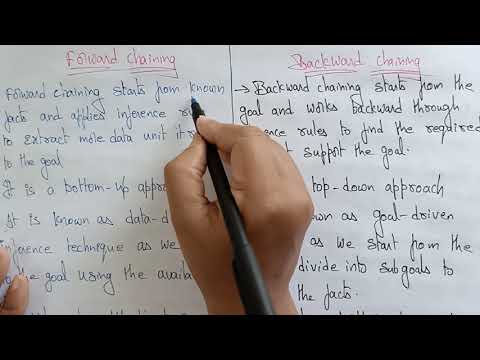 Forward Chaining
Forward chaining starts from known
facts and applies inference
to extract more data unit it
to the goal
It is a bottom-up
It is known as data-
inference technique as we
to the goal using the
Backward chaining
→ Backward chaining starts from the
goal and works backward through
rules to find the required
support the goal.
top-down approach
as goal-driven
as we start from the
divide into subgoals to
the facts.